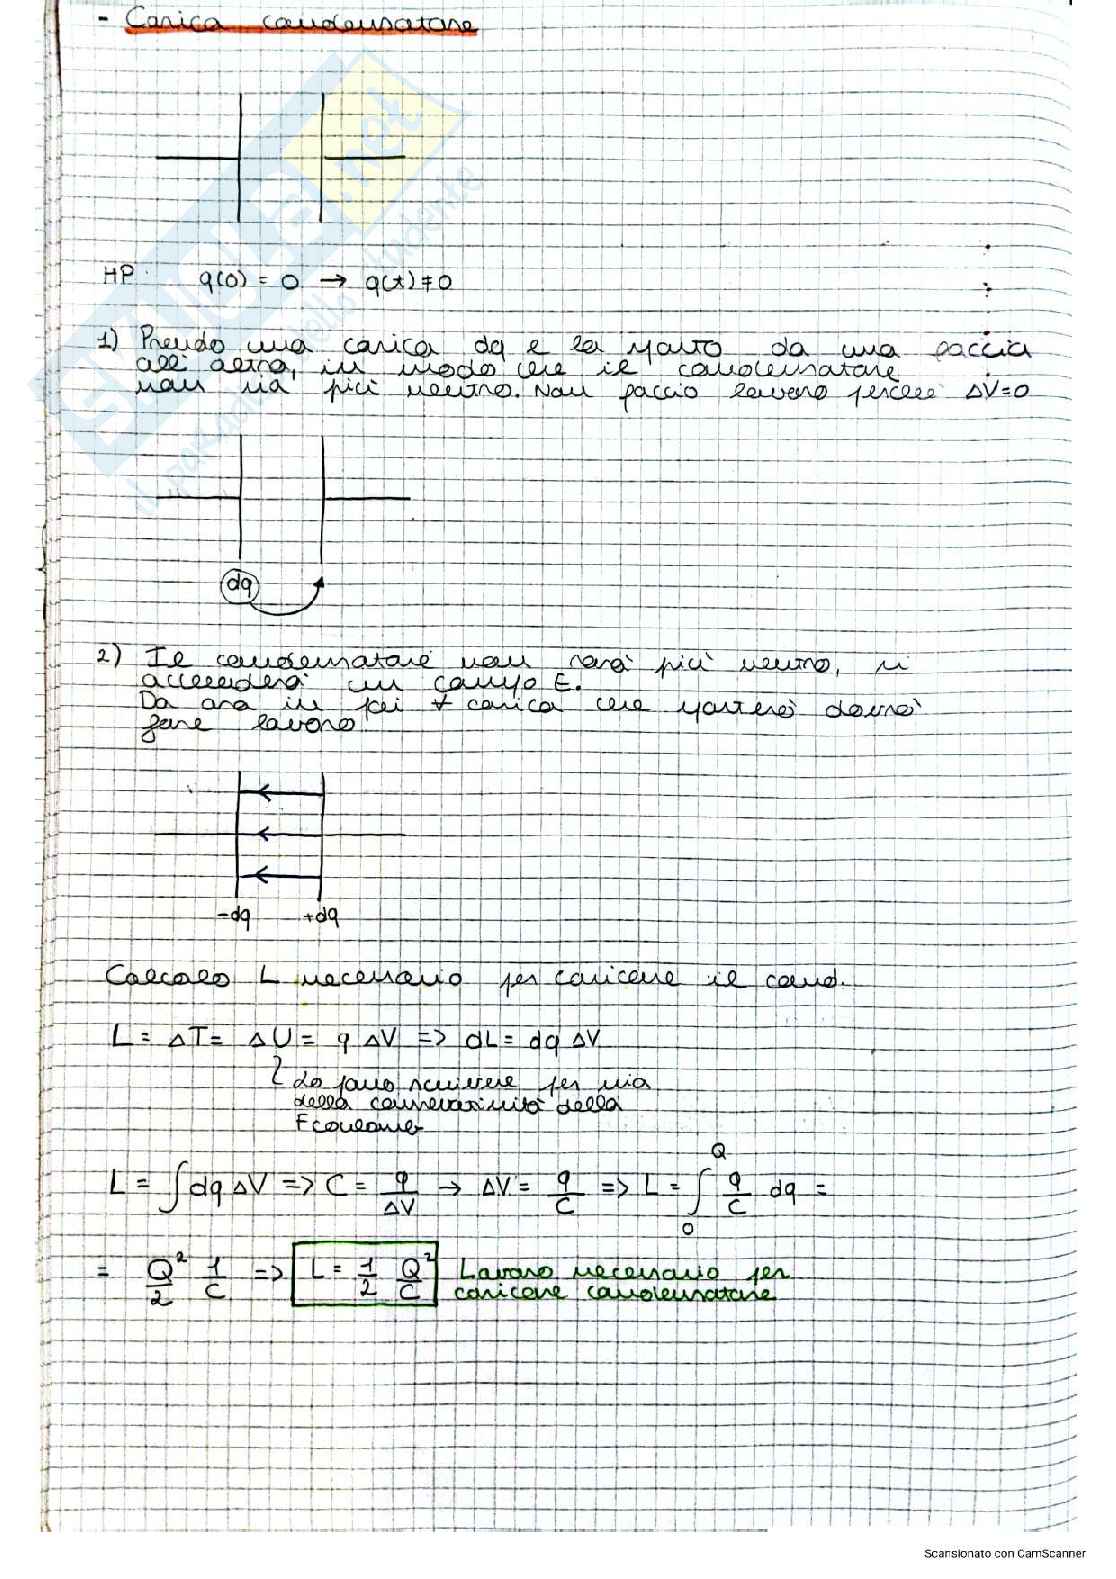 - Carica condensatore
HP: q(0) = 0 → q(t) ≠ 0
1) Prendo una carica dq e la sposto da una faccia
all'altra, in modo che il condensatore
non sia più neutro. Non faccio lavoro perché ΔV=0
dq
2) Il condensatore non sarà più neutro, si
accenderà un campo E.
Da ora in poi ∀ carica che sposterò dovrò
fare lavoro
-dq +dq
Calcolo L necessario per caricare il cond.
L = ΔT = ΔU = q ΔV => dL = dq ΔV
Lo posso scrivere per via
della conservatività della
F coulomb
L = ∫ dq ΔV => C = q/ΔV → ΔV = q/C => L = ∫₀^Q q/C dq =
= Q²/2 1/C => L = 1/2 Q²/C Lavoro necessario per
caricare condensatore
Scansionato con CamScanner